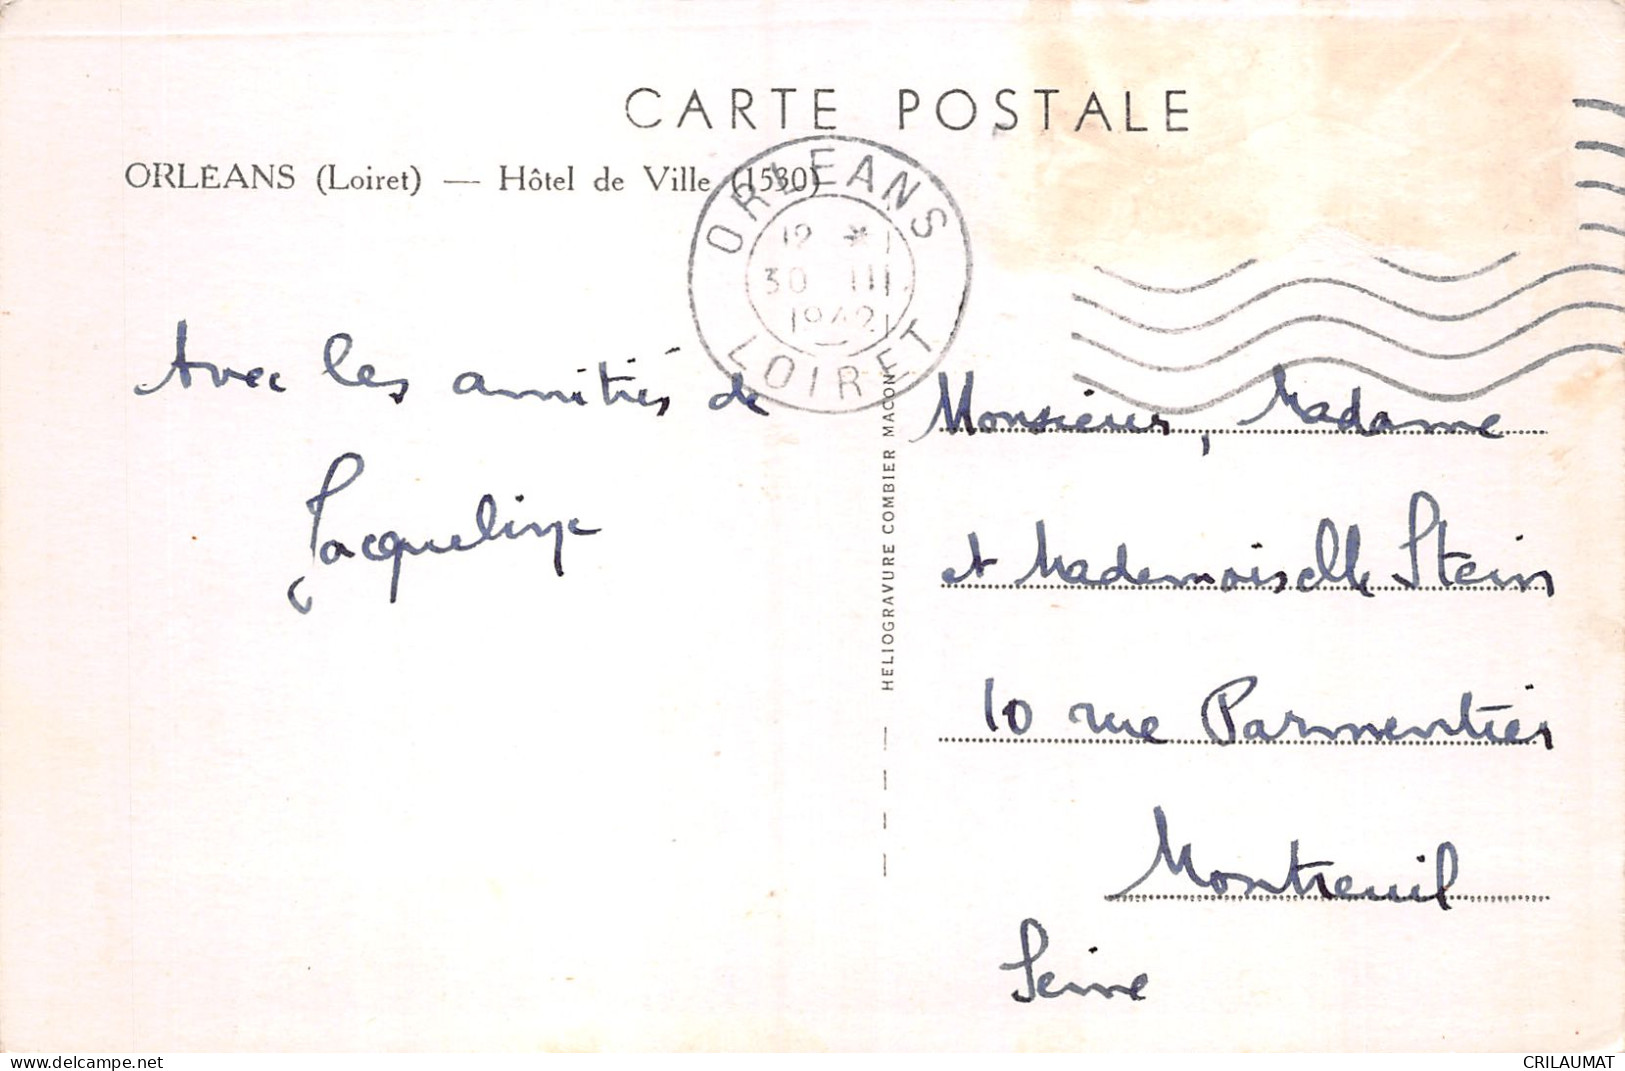 CARTE POSTALE
ORLÉANS (Loiret) — Hôtel de Ville (1530)
ORLEANS
12 *
30 III
1942
LOIRET
Avec les amitiés de
Jacqueline
HELIOGRAVURE COMBIER MACON
Monsieur, Madame
et Mademoiselle Stein
10 rue Parmentier
Montreuil
Seine
www.delcampe.net
CRILAUMAT